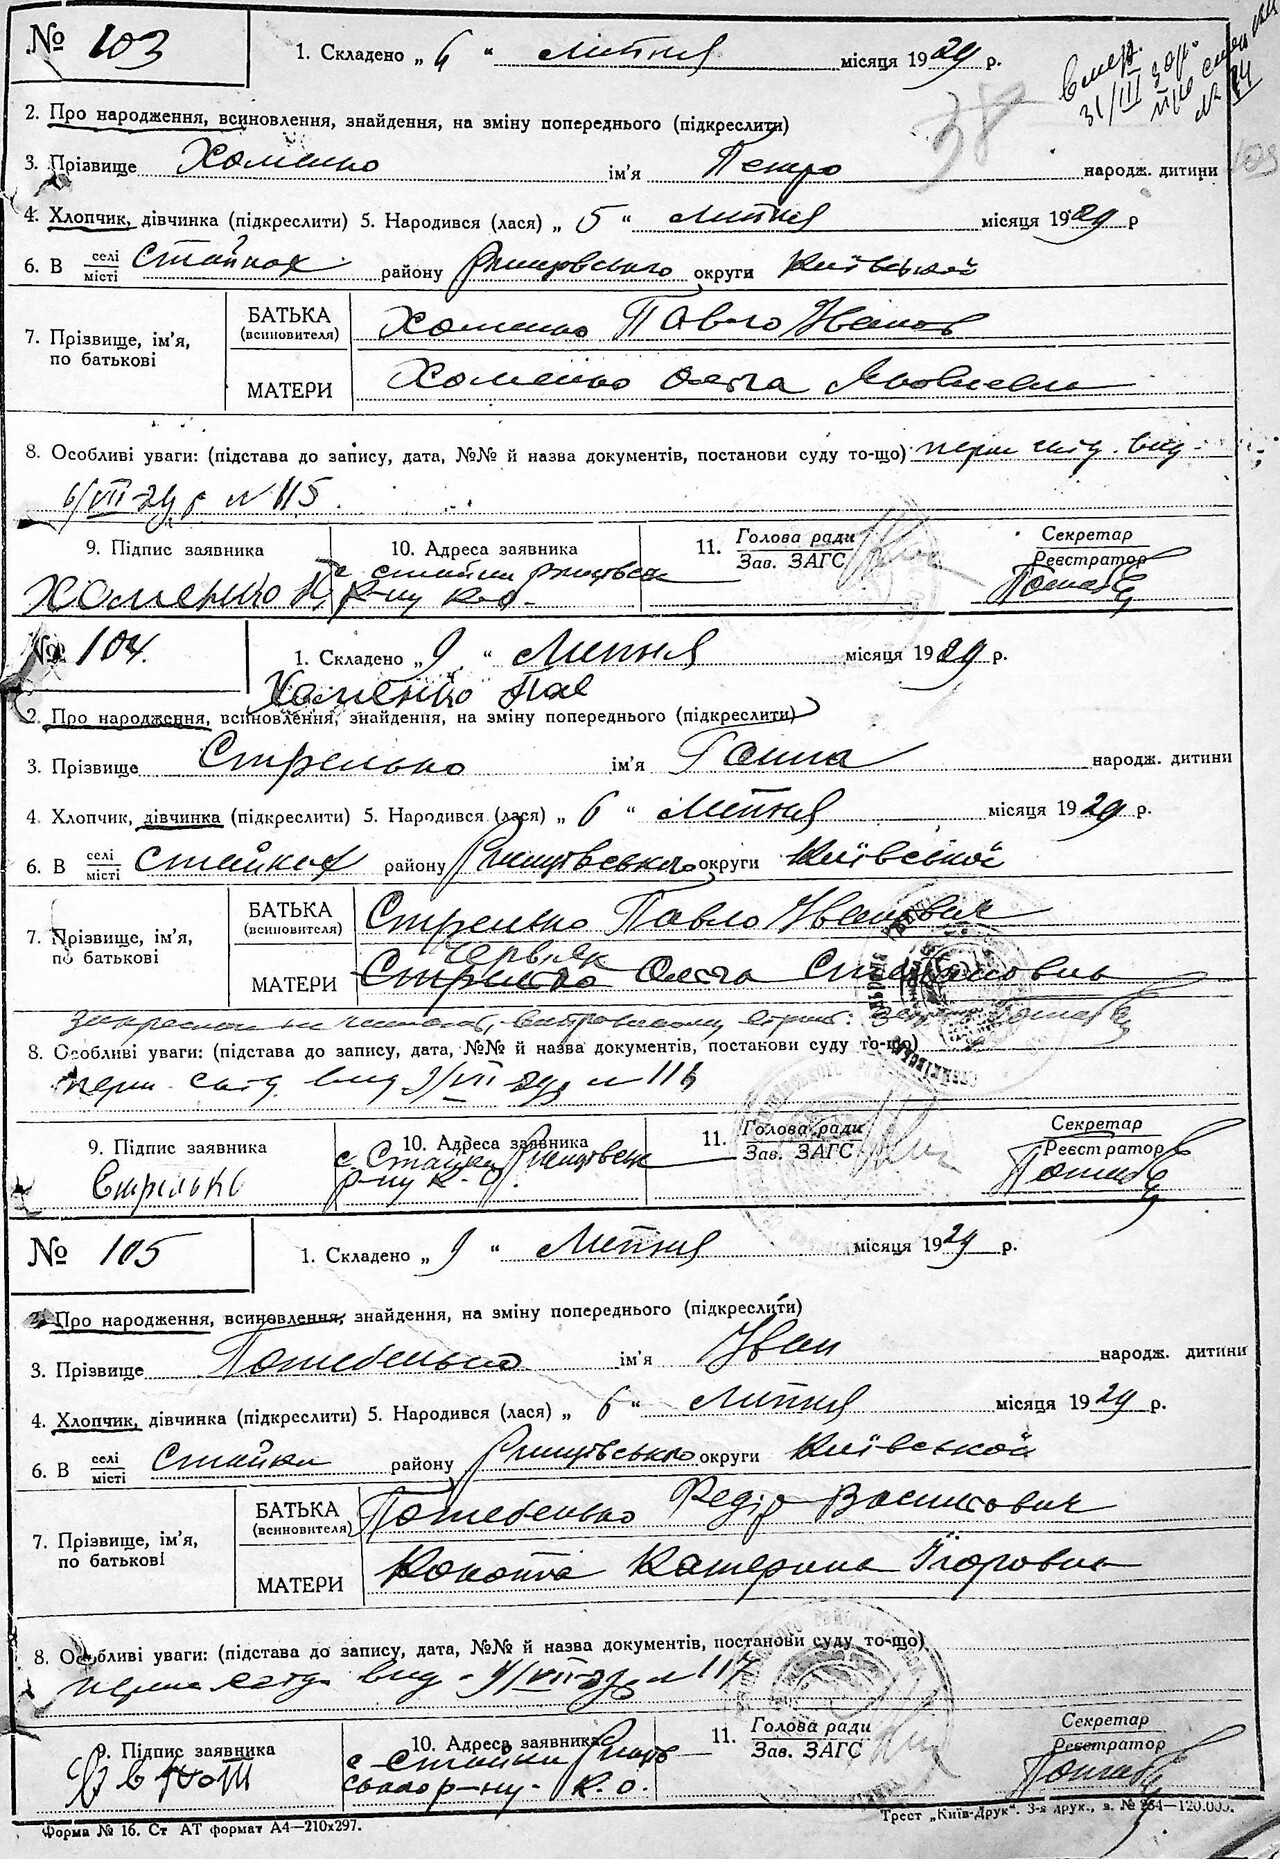 № 103
1. Складено „ 6 “ липня місяця 1929 р.
вмер.
31/III
№ 44
38
109
2. Про народження, всиновлення, знайдення, на зміну попереднього (підкреслити)
3. Прізвище Хоменко ім'я Петро народж. дитини
4. Хлопчик, дівчинка (підкреслити) 5. Народився (лася) „ 5 “ липня місяця 1929 р
6. В селі місті Стайках району Ржищівського округи Київської
7. Прізвище, ім'я, по батькові
БАТЬКА (всиновителя) Хоменко Павло Іванов
МАТЕРИ Хоменко Ольга Яковлевна
8. Особливі уваги: (підстава до запису, дата, №№ й назва документів, постанови суду то-що) перш свід. вид
6/VII-29 р № 115.
9. Підпис заявника 10. Адреса заявника 11. Голова ради Зав. ЗАГС Секретар Реєстратор
Хоменко П. с Стайки Ржищівськ
р-ну К-о-
№ 104.
1. Складено „ 9 “ Липня місяця 1929 р.
Хоменко Пав
2. Про народження, всиновлення, знайдення, на зміну попереднього (підкреслити)
3. Прізвище Стрелько ім'я Ганна народж. дитини
4. Хлопчик, дівчинка (підкреслити) 5. Народився (лася) „ 6 “ Липня місяця 1929 р.
6. В селі місті Стайках району Ржищівського округи Київської
7. Прізвище, ім'я, по батькові
БАТЬКА (всиновителя) Стрелько Павло Іванович
Червяк
МАТЕРИ Стрелько Ольга Степановна
8. Особливі уваги: (підстава до запису, дата, №№ й назва документів, постанови суду то-що)
перш свід. вид 9/VII-29 р № 116
9. Підпис заявника 10. Адреса заявника 11. Голова ради Зав. ЗАГС Секретар Реєстратор
Стрелько с Стайки Ржищівськ
р-ну К. О.
№ 105
1. Складено „ 9 “ Липня місяця 1929 р.
2. Про народження, всиновлення, знайдення, на зміну попереднього (підкреслити)
3. Прізвище Потебенько ім'я Іван народж. дитини
4. Хлопчик, дівчинка (підкреслити) 5. Народився (лася) „ 6 “ Липня місяця 1929 р.
6. В селі місті Стайки району Ржищівського округи Київської
7. Прізвище, ім'я, по батькові
БАТЬКА (всиновителя) Потебенько Федір Васильович
МАТЕРИ Конопа Катерина Ігоровна
8. Особливі уваги: (підстава до запису, дата, №№ й назва документів, постанови суду то-що)
перш свід. вид - 9/VII-29 р № 117
9. Підпис заявника 10. Адреса заявника 11. Голова ради Зав. ЗАГС Секретар Реєстратор
с Стайки Ржищів
ського р-ну- К. О.
Форма № 16. Ст АТ формат А4—210x297.
Трест „Київ-Друк“. 3-я друк., з. № 264—120.000.